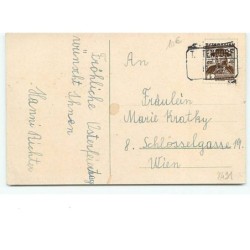 10€
Fröhliche Osterfeiertage
wünscht Ihnen
Hanni Richter
An
Fräulein
Marie Kratky
8. Schlösselgasse 19.
Wien